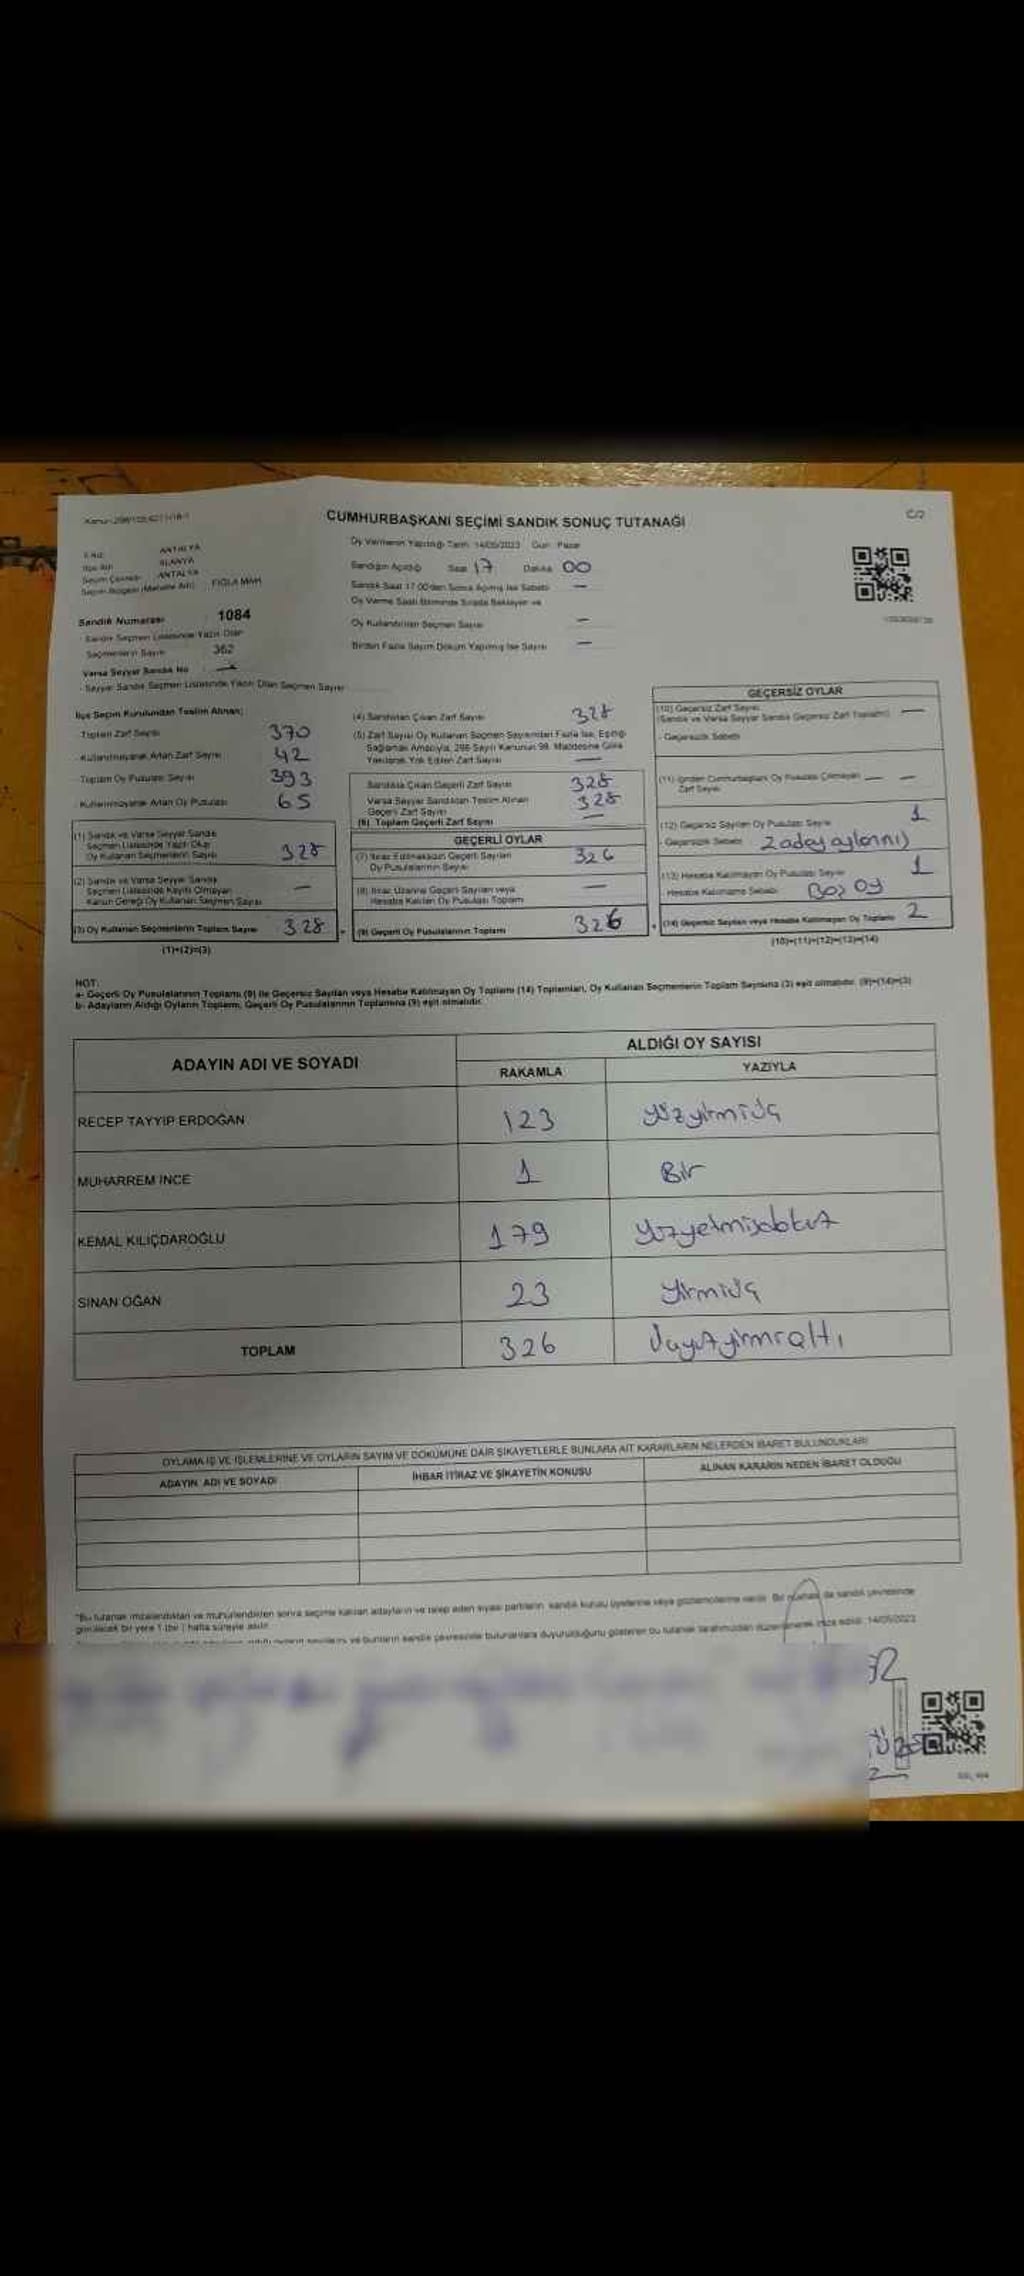 CUMHURBAŞKANI SEÇİMİ SANDIK SONUÇ TUTANAĞI
C/2
İl Adı: ANTALYA
İlçe Adı ALANYA
Seçim Çevresi ANTALYA
Seçim Bölgesi (Mahalle Adı) FIĞLA MAH
Sandık Numarası : 1084
Sandık Seçmen Listesinde Yazılı Olan
Seçmenlerin Sayısı 362
Varsa Seyyar Sandık No —
Seyyar Sandık Seçmen Listesinde Yazılı Olan Seçmen Sayısı
Oy Vermenin Yapıldığı Tarih 14/05/2023 Gün: Pazar
Sandığın Açıldığı Saat 17 Dakika 00
Sandık Saat 17.00'den Sonra Açılmış İse Sebebi —
Oy Verme Saati Bitiminde Sırada Bekleyen ve
Oy Kullandırılan Seçmen Sayısı —
Birden Fazla Sayım Döküm Yapılmış İse Sayısı —
İlçe Seçim Kurulundan Teslim Alınan;
- Toplam Zarf Sayısı 370
- Kullanılmayarak Artan Zarf Sayısı 42
- Toplam Oy Pusulası Sayısı 393
- Kullanılmayarak Artan Oy Pusulası 65
(1) Sandık ve Varsa Seyyar Sandık
Seçmen Listesinde Yazılı Olup
Oy Kullanan Seçmenlerin Sayısı 328
(2) Sandık ve Varsa Seyyar Sandık
Seçmen Listesinde Kayıtlı Olmayan
Kanun Gereği Oy Kullanan Seçmen Sayısı —
(3) Oy Kullanan Seçmenlerin Toplam Sayısı 328
(1)+(2)=(3)
(4) Sandıktan Çıkan Zarf Sayısı 328
(5) Zarf Sayısı Oy Kullanan Seçmen Sayısından Fazla İse, Eşitliği
Sağlamak Amacıyla, 298 Sayılı Kanunun 98. Maddesine Göre
Yakılarak Yok Edilen Zarf Sayısı —
Sandıkta Çıkan Geçerli Zarf Sayısı 328
Varsa Seyyar Sandıktan Teslim Alınan 328
Geçerli Zarf Sayısı
(6) Toplam Geçerli Zarf Sayısı —
GEÇERLİ OYLAR
(7) İtiraz Edilmeksizin Geçerli Sayılan 326
Oy Pusulalarının Sayısı
(8) İtiraz Üzerine Geçerli Sayılan veya —
Hesaba Katılan Oy Pusulası Toplamı
(9) Geçerli Oy Pusulalarının Toplamı 326
GEÇERSİZ OYLAR
(10) Geçersiz Zarf Sayısı
(Sandık ve Varsa Seyyar Sandık Geçersiz Zarf Toplamı) —
- Geçersizlik Sebebi
(11) İçinden Cumhurbaşkanı Oy Pusulası Çıkmayan — —
Zarf Sayısı
(12) Geçersiz Sayılan Oy Pusulası Sayısı 1
- Geçersizlik Sebebi 2 aday
(13) Hesaba Katılmayan Oy Pusulası Sayısı 1
- Hesaba Katılmama Sebebi Boş oy
(14) Geçersiz Sayılan veya Hesaba Katılmayan Oy Toplamı 2
(10)+(11)+(12)+(13)=(14)
NOT:
a- Geçerli Oy Pusulalarının Toplamı (9) ile Geçersiz Sayılan veya Hesaba Katılmayan Oy Toplamı (14) Toplamları, Oy Kullanan Seçmenlerin Toplam Sayısına (3) eşit olmalıdır. (9)+(14)=(3)
b- Adayların Aldığı Oyların Toplamı, Geçerli Oy Pusulalarının Toplamına (9) eşit olmalıdır.
ADAYIN ADI VE SOYADI
ALDIĞI OY SAYISI
RAKAMLA YAZIYLA
RECEP TAYYİP ERDOĞAN 123 yüzyirmiüç
MUHARREM İNCE 1 Bir
KEMAL KILIÇDAROĞLU 179 yüzyetmişdokuz
SİNAN OĞAN 23 yirmiüç
TOPLAM 326 üçyüzyirmialtı
OYLAMA İŞ VE İŞLEMLERİNE VE OYLARIN SAYIM VE DÖKÜMÜNE DAİR ŞİKAYETLERLE BUNLARA AİT KARARLARIN NELERDEN İBARET BULUNDUKLARI
ADAYIN ADI VE SOYADI İHBAR İTİRAZ VE ŞİKAYETİN KONUSU ALINAN KARARIN NEDEN İBARET OLDUĞU
"Bu tutanak imzalandıktan ve mühürlendikten sonra seçime katılan adayların ve talep eden siyasi partilerin sandık kurulu üyelerine veya gözlemcilerine verilir. Bir nüshası da sandık çevresinde
görülecek bir yere 1 (bir) hafta süreyle asılır.
ve bunların sandık çevresinde bulunanlara duyurulduğunu gösteren bu tutanak tarafımızdan düzenlenerek imza edildi. 14/05/2023